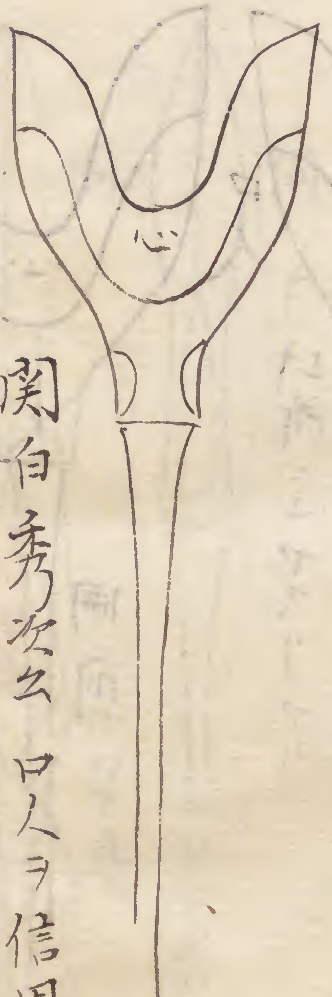 心
関白秀次公 口人ヲ信